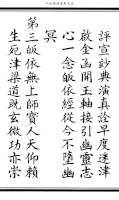 評宣妙典演真詮早度迷津
啟金函開玉軸接引幽靈志
心一念皈依經從今不墮幽
冥
第三皈依無上師寶人天仰賴
生死津梁道既玄微功亦崇